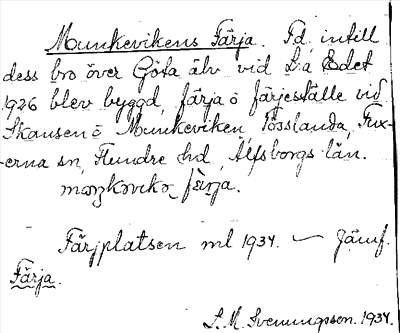 Munkevikens Färja. F.d. intill
dess bro över Göta älv vid L:a Edet
1926 blev byggd, färja o färjeställe vid
Skansen o Munkeviken, Tösslanda, Fux-
erna sn, Flundre hd, Älfsborgs län.
mɷŋkəvikə färja.
Färjplatsen ml 1934. — Jämf.
Färja.
S. M. Svenungsson. 1934.